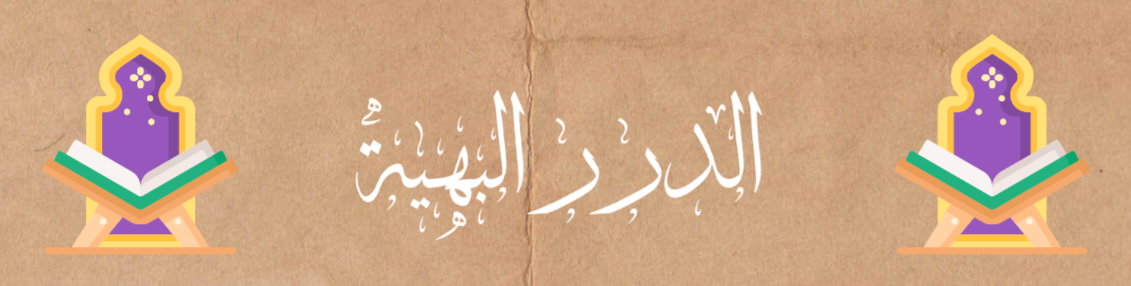 الدرر البهية